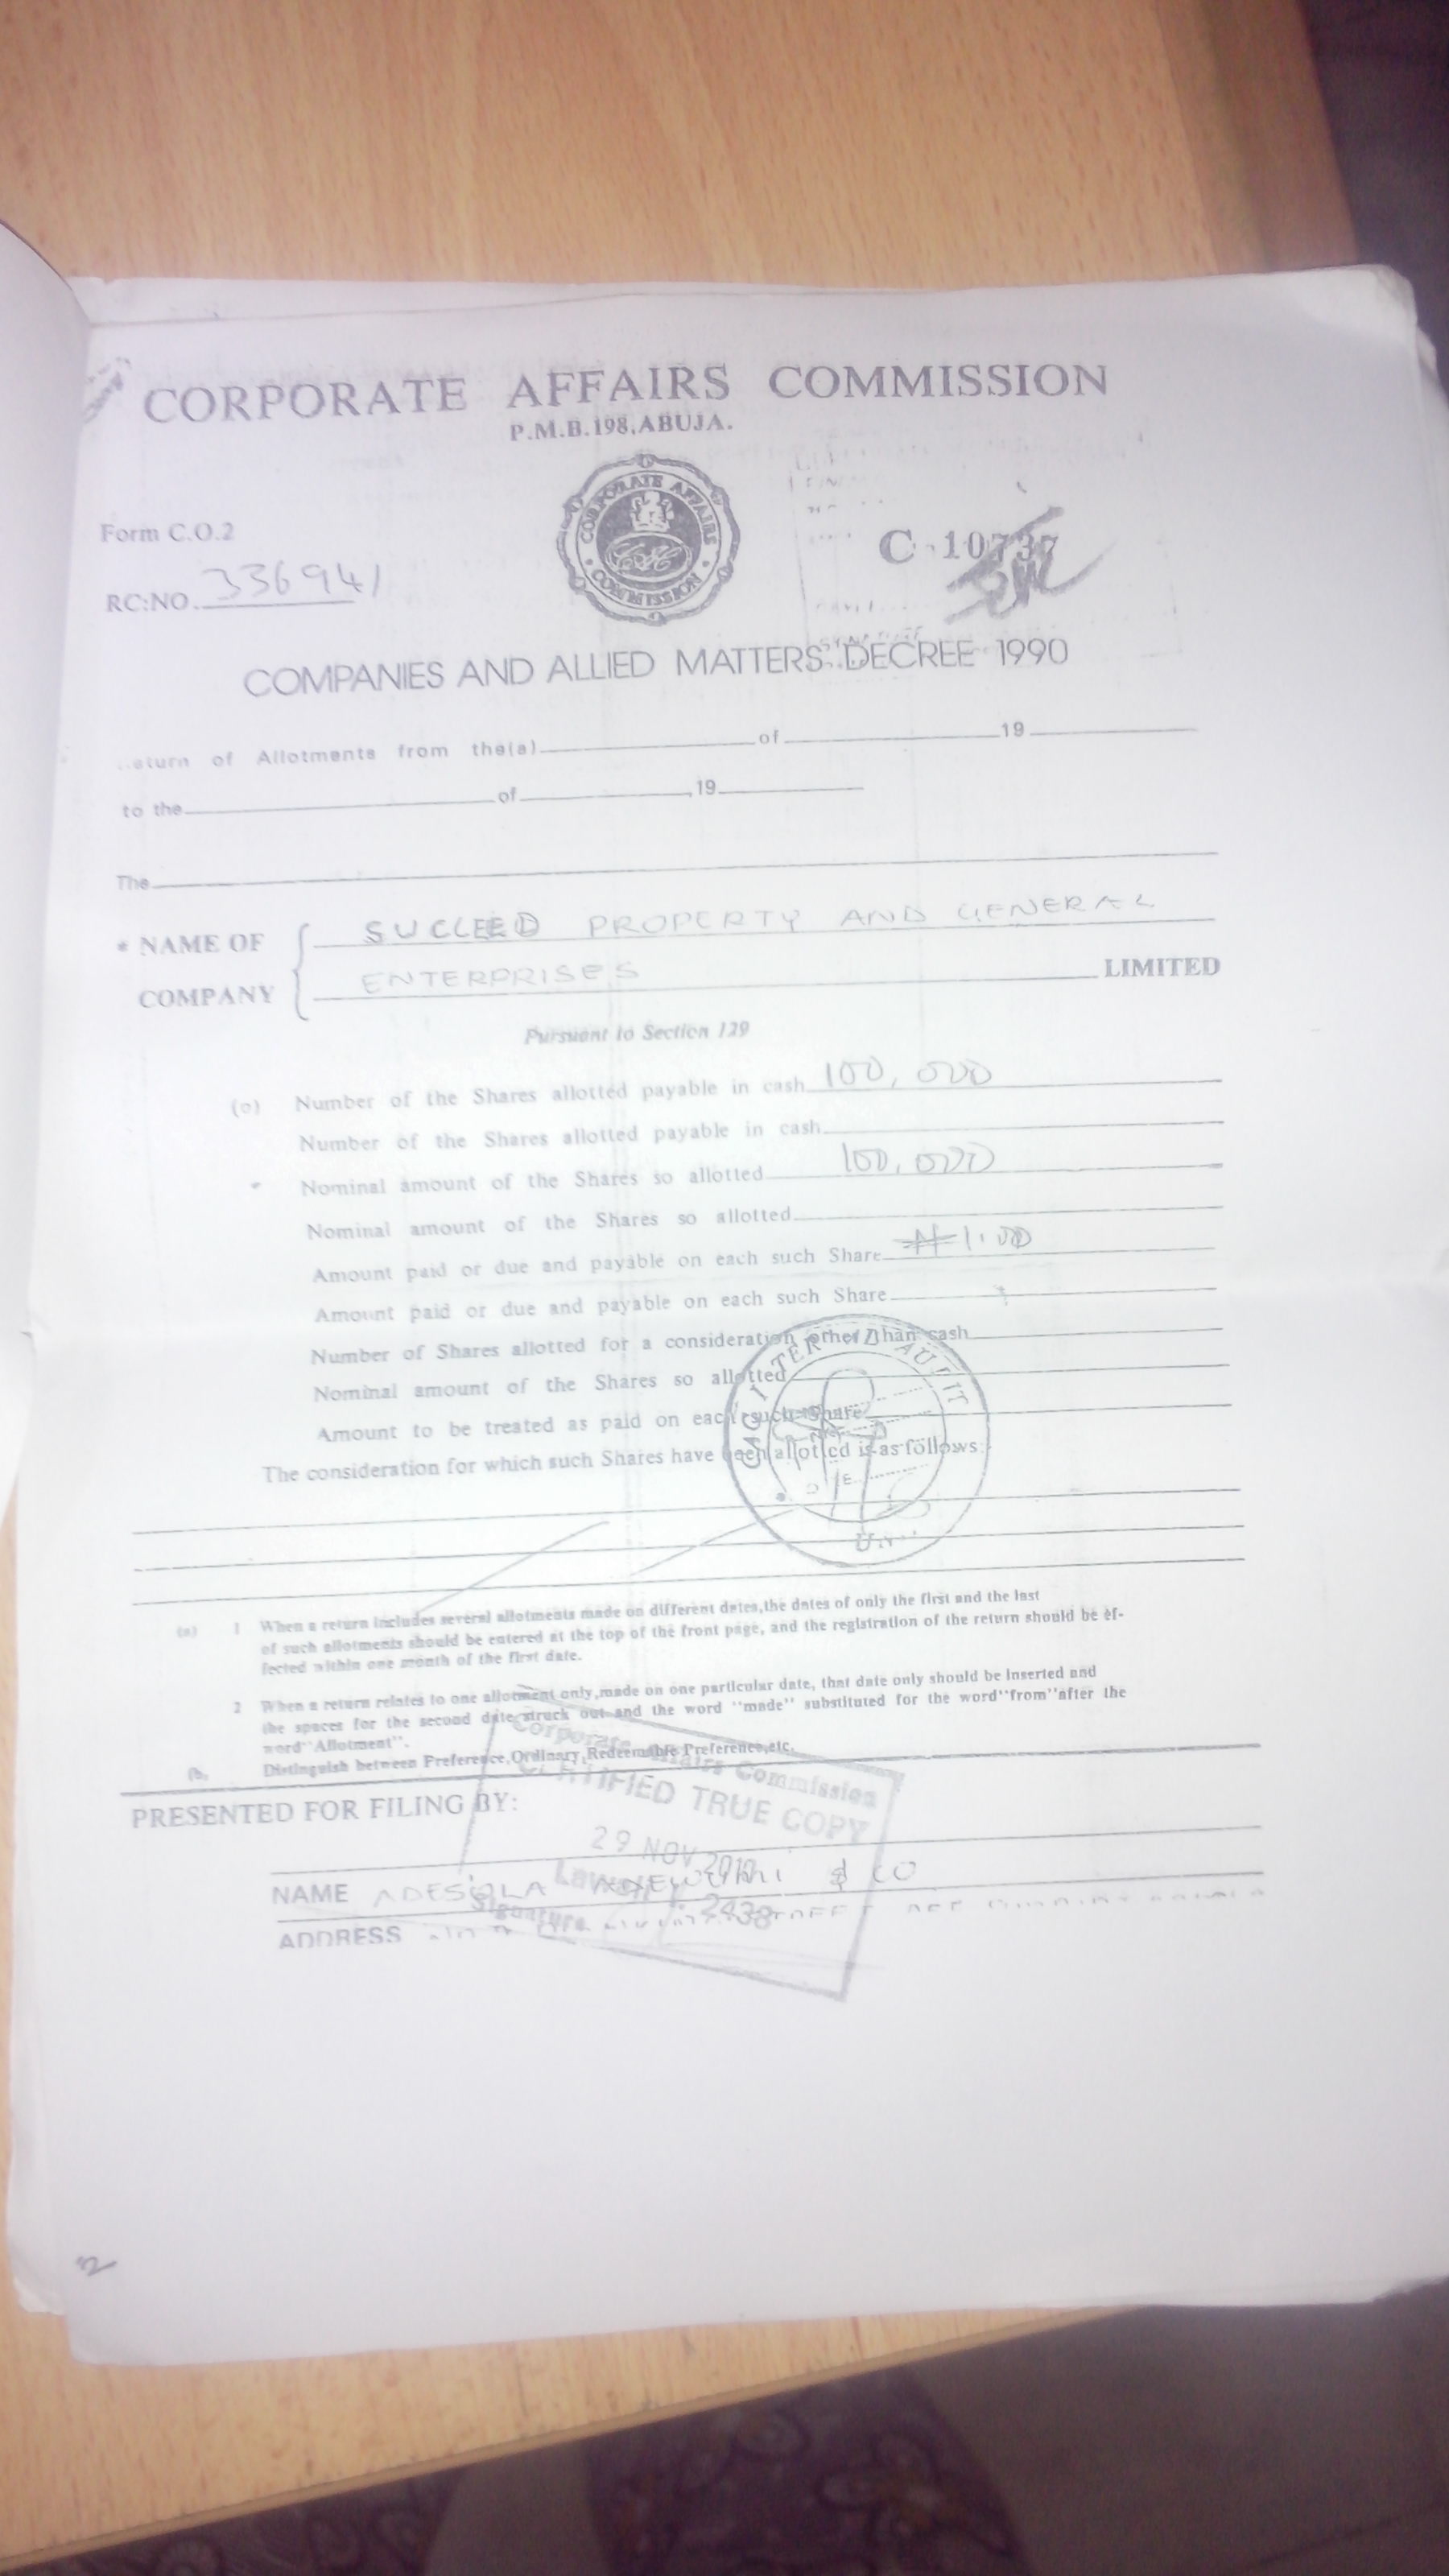 CORPORATE AFFAIRS COMMISSION
P.M.B.198,ABUJA.
CORPORATE AFFAIRS COMMISSION
Form C.O.2
C 10737
RC:NO. 336941
COMPANIES AND ALLIED MATTERS DECREE 1990
of Allotments from the(a) of 19
to the of 19
The
* NAME OF COMPANY
SUCCEED PROPERTY AND GENERAL
ENTERPRISES LIMITED
Pursuant to Section 129
(a) Number of the Shares allotted payable in cash 100,000
Number of the Shares allotted payable in cash
Nominal amount of the Shares so allotted 100,000
Nominal amount of the Shares so allotted
Amount paid or due and payable on each such Share ₦1.00
Amount paid or due and payable on each such Share
Number of Shares allotted for a consideration other than cash
Nominal amount of the Shares so allotted
Amount to be treated as paid on each such Share
The consideration for which such Shares have been allotted is as follows:
(a) 1 When a return includes several allotments made on different dates,the dates of only the first and the last
of such allotments should be entered at the top of the front page, and the registration of the return should be ef-
fected within one month of the first date.
2 When a return relates to one allotment only,made on one particular date, that date only should be inserted and
the spaces for the second date struck out and the word "made" substituted for the word"from"after the
word"Allotment".
(b. Distinguish between Preference,Ordinary,Redeemable Preference,etc.
Corporate Affairs Commission
CERTIFIED TRUE COPY
PRESENTED FOR FILING BY:
29 NOV
NAME ADESOLA & CO
Signature
ADDRESS
2